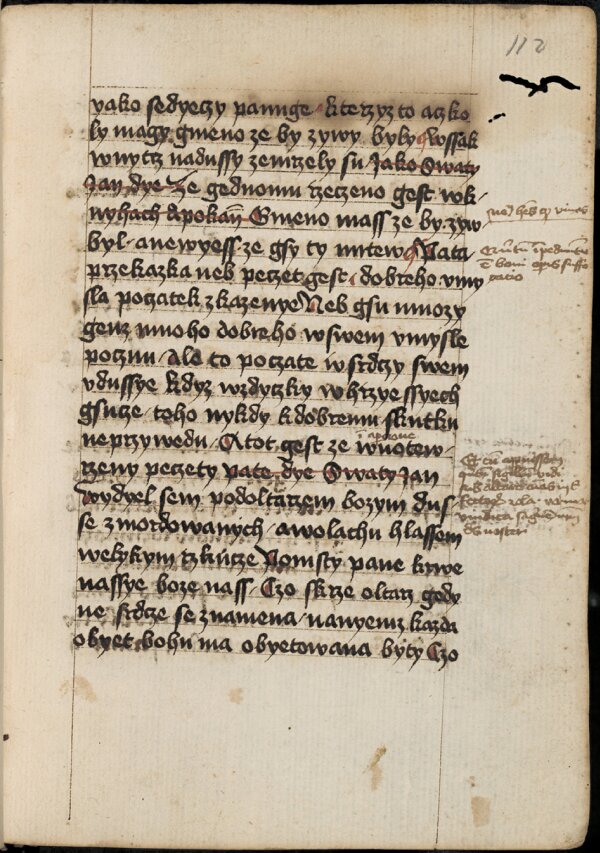 112
yako sedyeczy panuge kterzyz to aczko
ly magy gmeno ze by zywy byly wssak
wnytrz nadussy zemrzely su Jako Swaty
Jan dye Ze gednomu rzeczeno gest wk
nyhach Apokan Gmeno mass ze by zyw
byl a newyess ze gsy ty mrtew Pata
przekazka neb peczet gest dobreho vmy
sla poczatek zkazenye Neb gsu mnozy
genz mnoho dobreho wswem vmysle
pocznu Ale to poczate wsrdczy swem
vdussye kdyz wzdyczky whrzyessyech
gsucze toho nykdy kdobremu skutku
neprzywedu A tot gest ze wuotew
rzeny peczety pate dye Swaty Jan
Wydyel sem podoltarzem bozym dus
se zmordowanych a wolachu hlassem
welykym rzkucze Pomsty pane krwe
nassye boze nass Czo skrze oltarz gedy
ne srdcze se znamena nanyemz kazda
obyet bohu ma obyetowana byty Czo